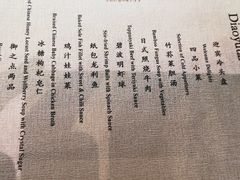 Diaoyuta
迎宾冷头盘
Welcome Delicacy
四品小菜
Selection of Cold Appetizers
竹荪菜胆汤
Bamboo Fungus Soup with Vegetables
日式照烧牛肉
Teppanyaki Beef with Teriyaki Sauce
碧波明虾球
Stir-fried Shrimp Balls with Spinach Sauce
纸包龙利鱼
Baked Sole Fish Fillet with Sweet & Chili Sauce
鸡汁娃娃菜
Braised Chinese Baby Cabbage in Chicken Broth
冰糖枸杞皂仁
of Chinese Honey Locust Seed and Wolfberry Soup with Crystal Sugar
御之点两品